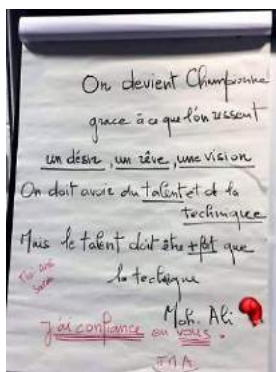 On devient Championne
grace à ce que l'on ressent
un désir, un rêve, une vision
On doit avoir du talent et de la
technique
Mais le talent doit être + fort que
la technique
Moh. Ali
J'ai confiance en vous.